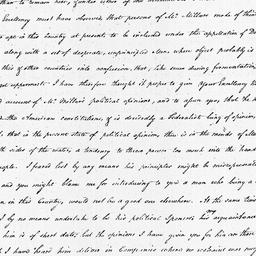 than to remain here, of
Excellency must have observed that persons of Mr. Millars mode of thin
apt in this Country at present to be included under the appellation of De
along with a set of desperate, unprincipled men whose object probably is
this & other countries into confusion, that, like scum during fermentation,
get uppermost. I have therefore thought it proper to give your Excellency th
account of Mr. Millars political opinions, and to assure you that he is
the American constitution, & is decidedly a Federalist being of opinion,
that in the present state of political opinions there is in the minds of all
th sides of the water, a tendency to throw power too much into the hand
people. I feared lest by any means his principles might be misrepresente
and you might blame me for introducing to you a man who being a
in this Country, would not be a good one elsewhere. At the same time
I by no means undertake to be his political sponsor his acquaintance
him is of short date; but the opinions I have given you for him are those
I have heard him deliver in Companies where no restraint was